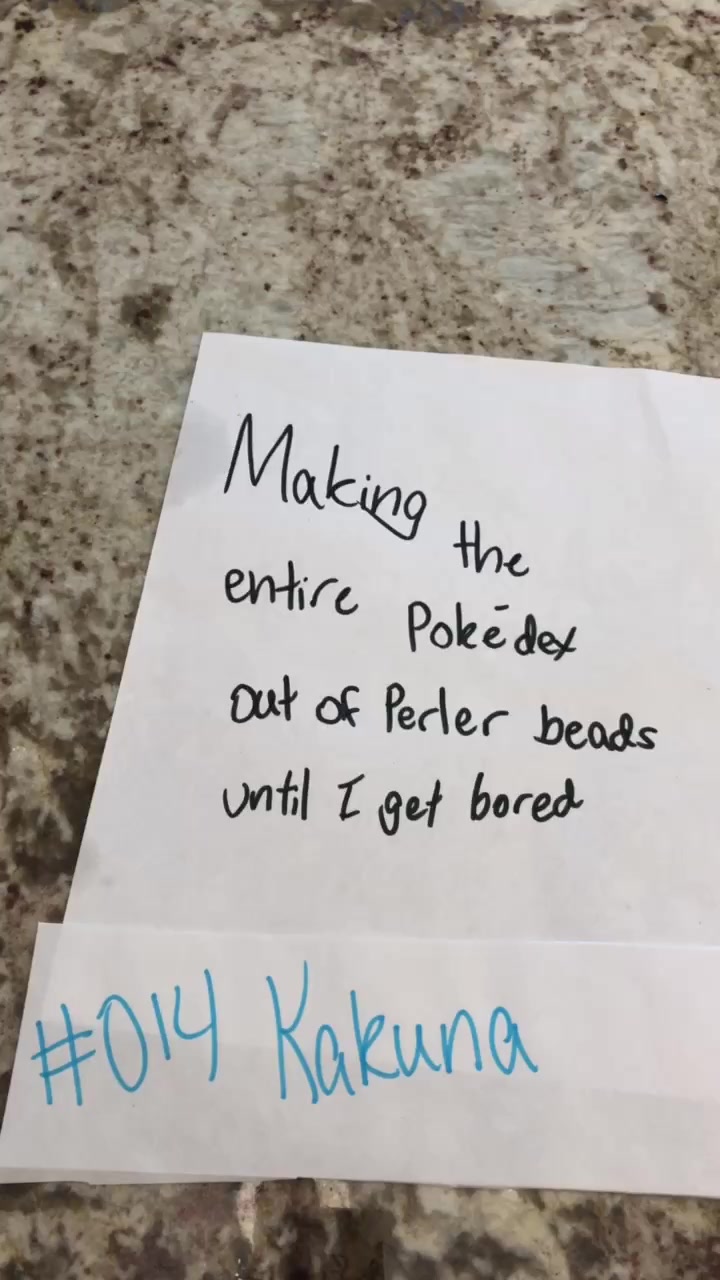 Making the
entire Pokédex
out of Perler beads
until I get bored
#014 Kakuna